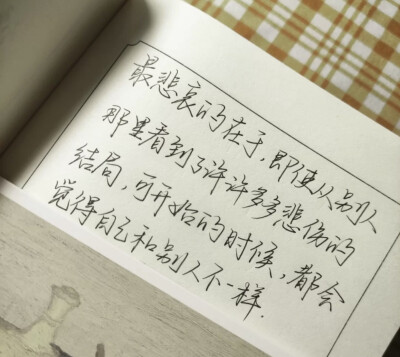 最悲哀的在于，即使从别人
那里看到了许许多多悲伤的
结局，可开始的时候，都会
觉得自己和别人不一样.